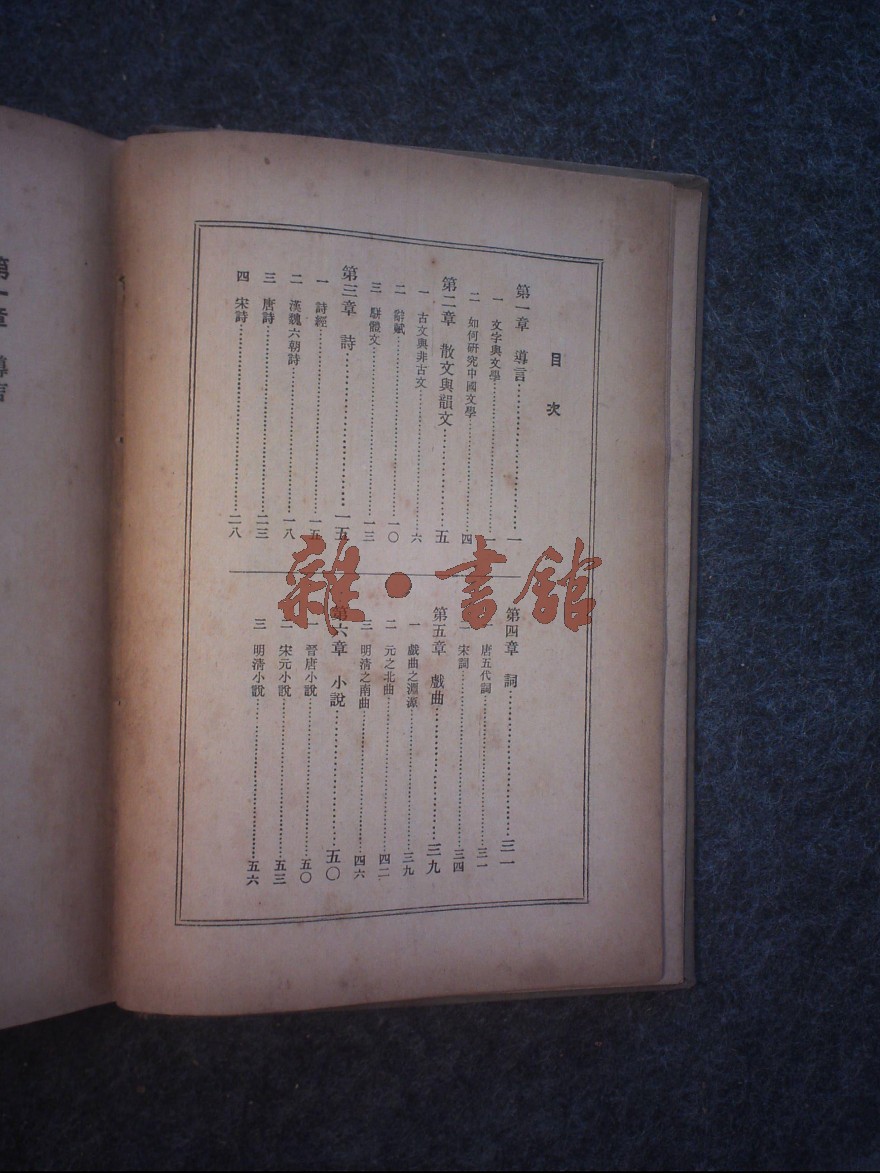 目次
第一章 導言……一
一 文字與文學……一
二 如何研究中國文學……四
第二章 散文與韻文……五
一 古文與非古文……六
二 辭賦……一〇
三 駢體文……一三
第三章 詩……一五
一 詩經……一五
二 漢魏六朝詩……一八
三 唐詩……二三
四 宋詩……二八
第四章 詞……三一
一 唐五代詞……三一
二 宋詞……三四
第五章 戲曲……三九
一 戲曲之淵源……三九
二 元之北曲……四二
三 明清之南曲……四六
第六章 小說……五〇
一 晉唐小說……五〇
二 宋元小說……五三
三 明清小說……五六
第一章 導言
雜·書館